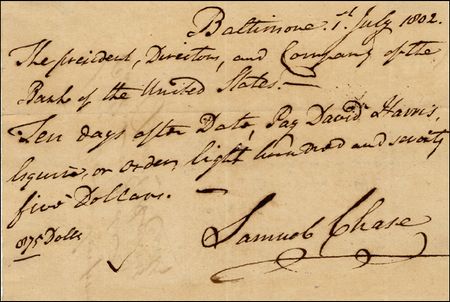 Baltimore. 1st July 1802.
The president, Directors, and Company of the
Bank of the United States.—
Ten days after Date, Pay David Harris,
Esquire, or order, Eight hundred and seventy
five Dollars. —
875 Dolls
Samuel Chase